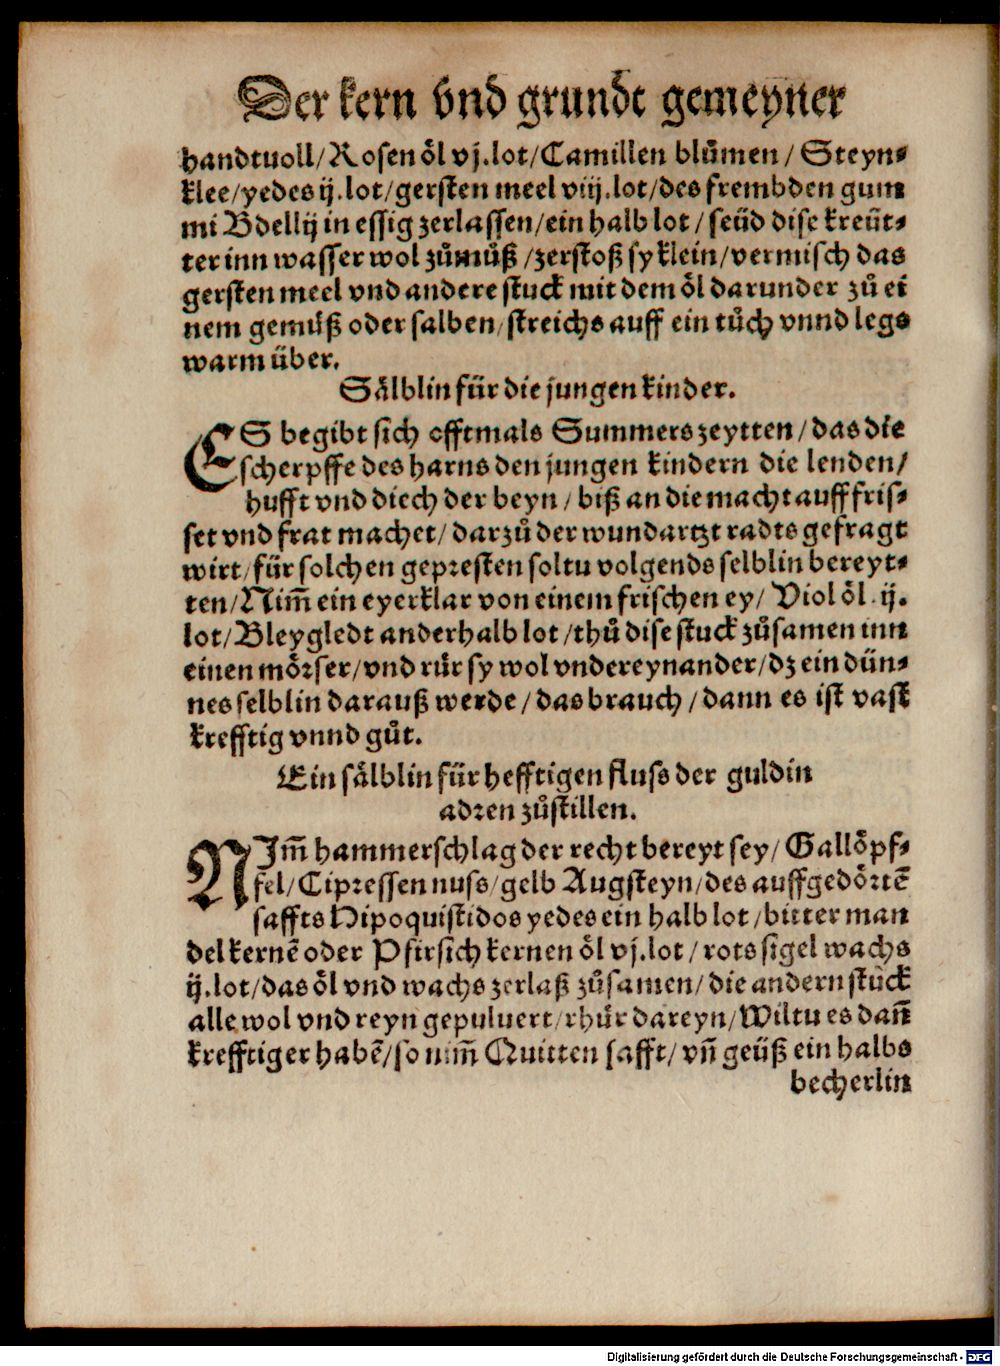 Der kern vnd grundt gemeyner
handtuoll/Rosen ôl vj.lot/Camillen blůmen/ Steyn⸗
klee/yedes ij.lot/gersten meel viij.lot/des frembden gum
mi Bdellij in essig zerlassen/ein halb lot/seüd dise kreüt⸗
ter inn wasser wol zů můß/zerstoß sy klein/vermisch das
gersten meel vnd andere stuck mit dem ôl darunder zů ei
nem gemůß oder salben/streichs auff ein tůch vnnd legs
warm über.
Sälblin für die jungen kinder.
ES begibt sich offtmals Summerszeytten/das die
scherpffe des harns den jungen kindern die lenden/
hufft vnd diech der beyn/biß an die macht auff fris⸗
set vnd frat machet/darzů der wundartzt radts gefragt
wirt/für solchen gepresten soltu volgends selblin bereyt⸗
ten/Nim̄ ein eyerklar von einem frischen ey/ Viol ôl ij.
lot/Bleygledt anderhalb lot/thů dise stuck zůsamen inn
einen mörser/vnd rür sy wol vndereynander/dz ein dün⸗
nes selblin darauß werde/das brauch/dann es ist vast
krefftig vnnd gůt.
Ein sälblin für hefftigen fluss der guldin
adren zůstillen.
NIm̄ hammerschlag der recht bereyt sey/Gallôpf⸗
fel/Cipressen nuss/gelb Augsteyn/des auffgedörtē
saffts Hipoquistidos yedes ein halb lot/bitter man
del kernē oder Pfirsich kernen ôl vj.lot/rots sigel wachs
ij.lot/das ôl vnd wachs zerlaß zůsamen/die andern stuck
alle wol vnd reyn gepuluert/rhůr dareyn/Wiltu es dañ
krefftiger habē/so nim̄ Quitten safft/vñ geüß ein halbs
becherlin
Digitalisierung gefördert durch die Deutsche Forschungsgemeinschaft - DFG